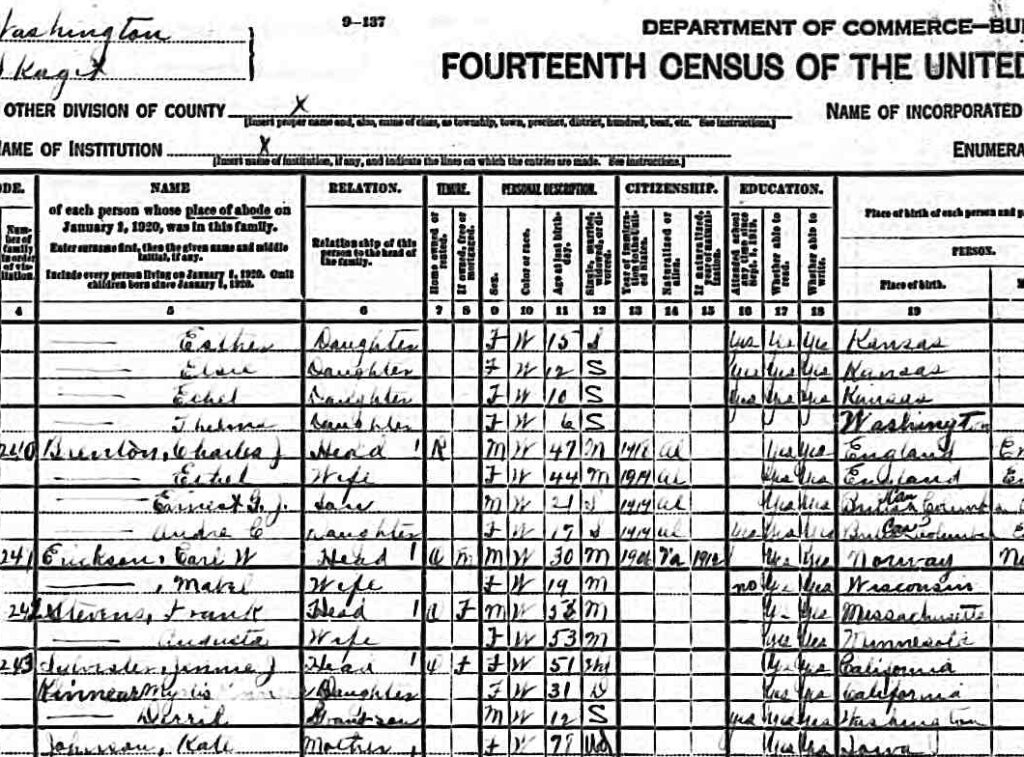 Washington
9-137
DEPARTMENT OF COMMERCE—BU
Skagit
FOURTEENTH CENSUS OF THE UNITED
OTHER DIVISION OF COUNTY X
NAME OF INCORPORATED
[Insert proper name and, also, name of class, as township, town, precinct, district, hundred, beat, etc. See instructions.]
NAME OF INSTITUTION X
ENUMERA
[Insert name of institution, if any, and indicate the lines on which the entries are made. See instructions.]
ODE. NAME RELATION. TENURE. PERSONAL DESCRIPTION. CITIZENSHIP. EDUCATION.
Num-ber of family in order of vis-itation.
of each person whose place of abode on
January 1, 1920, was in this family.
Enter surname first, then the given name and middle
initial, if any.
Include every person living on January 1, 1920. Omit
children born since January 1, 1920.
Relationship of this
person to the head of
the family.
Home owned or rented.
If owned, free or mortgaged.
Sex.
Color or race.
Age at last birth-day.
Single, married, widowed, or di-vorced.
Year of immigra-tion to the Unit-ed States.
Naturalized or alien.
If naturalized, year of natural-ization.
Attended school any time since Sept. 1, 1919.
Whether able to read.
Whether able to write.
Place of birth of each person and p
PERSON.
Place of birth.
M
4 5 6 7 8 9 10 11 12 13 14 15 16 17 18 19
Esther Daughter F W 15 S Yes Yes Yes Kansas
Elsie Daughter F W 12 S Yes Yes Yes Kansas
Ethel Daughter F W 10 S Yes Yes Yes Kansas
Thelma Daughter F W 6 S Washington
240 Brenton, Charles J Head 1 R M W 47 M Al Yes Yes England En
Ethel Wife F W 44 M 1919 Al Yes Yes England En
Ernest G. J. Son M W 21 S 1919 Al Yes Yes British
C Daughter F W 17 S 1919 Al Yes Yes Yes Columbia
241 Erickson, Carl W Head 1 O M M W 30 M 1906 Na 1912 Yes Yes Norway No
, Mabel Wife F W 19 M no Yes Yes Wisconsin
242 Stevens, Frank Head 1 O F M W M Yes Yes Massachusetts
Augusta Wife F W 53 M Yes Yes Minnesota
243 Jennie J Head 1 O F F W 51 Wd Yes Yes California
Kinnear Myrtis Daughter F W 31 D Yes Yes California
Derril Grandson M W 12 S Yes Yes Yes Washington
Johnson, Kate Mother F W Wd Yes Yes Iowa